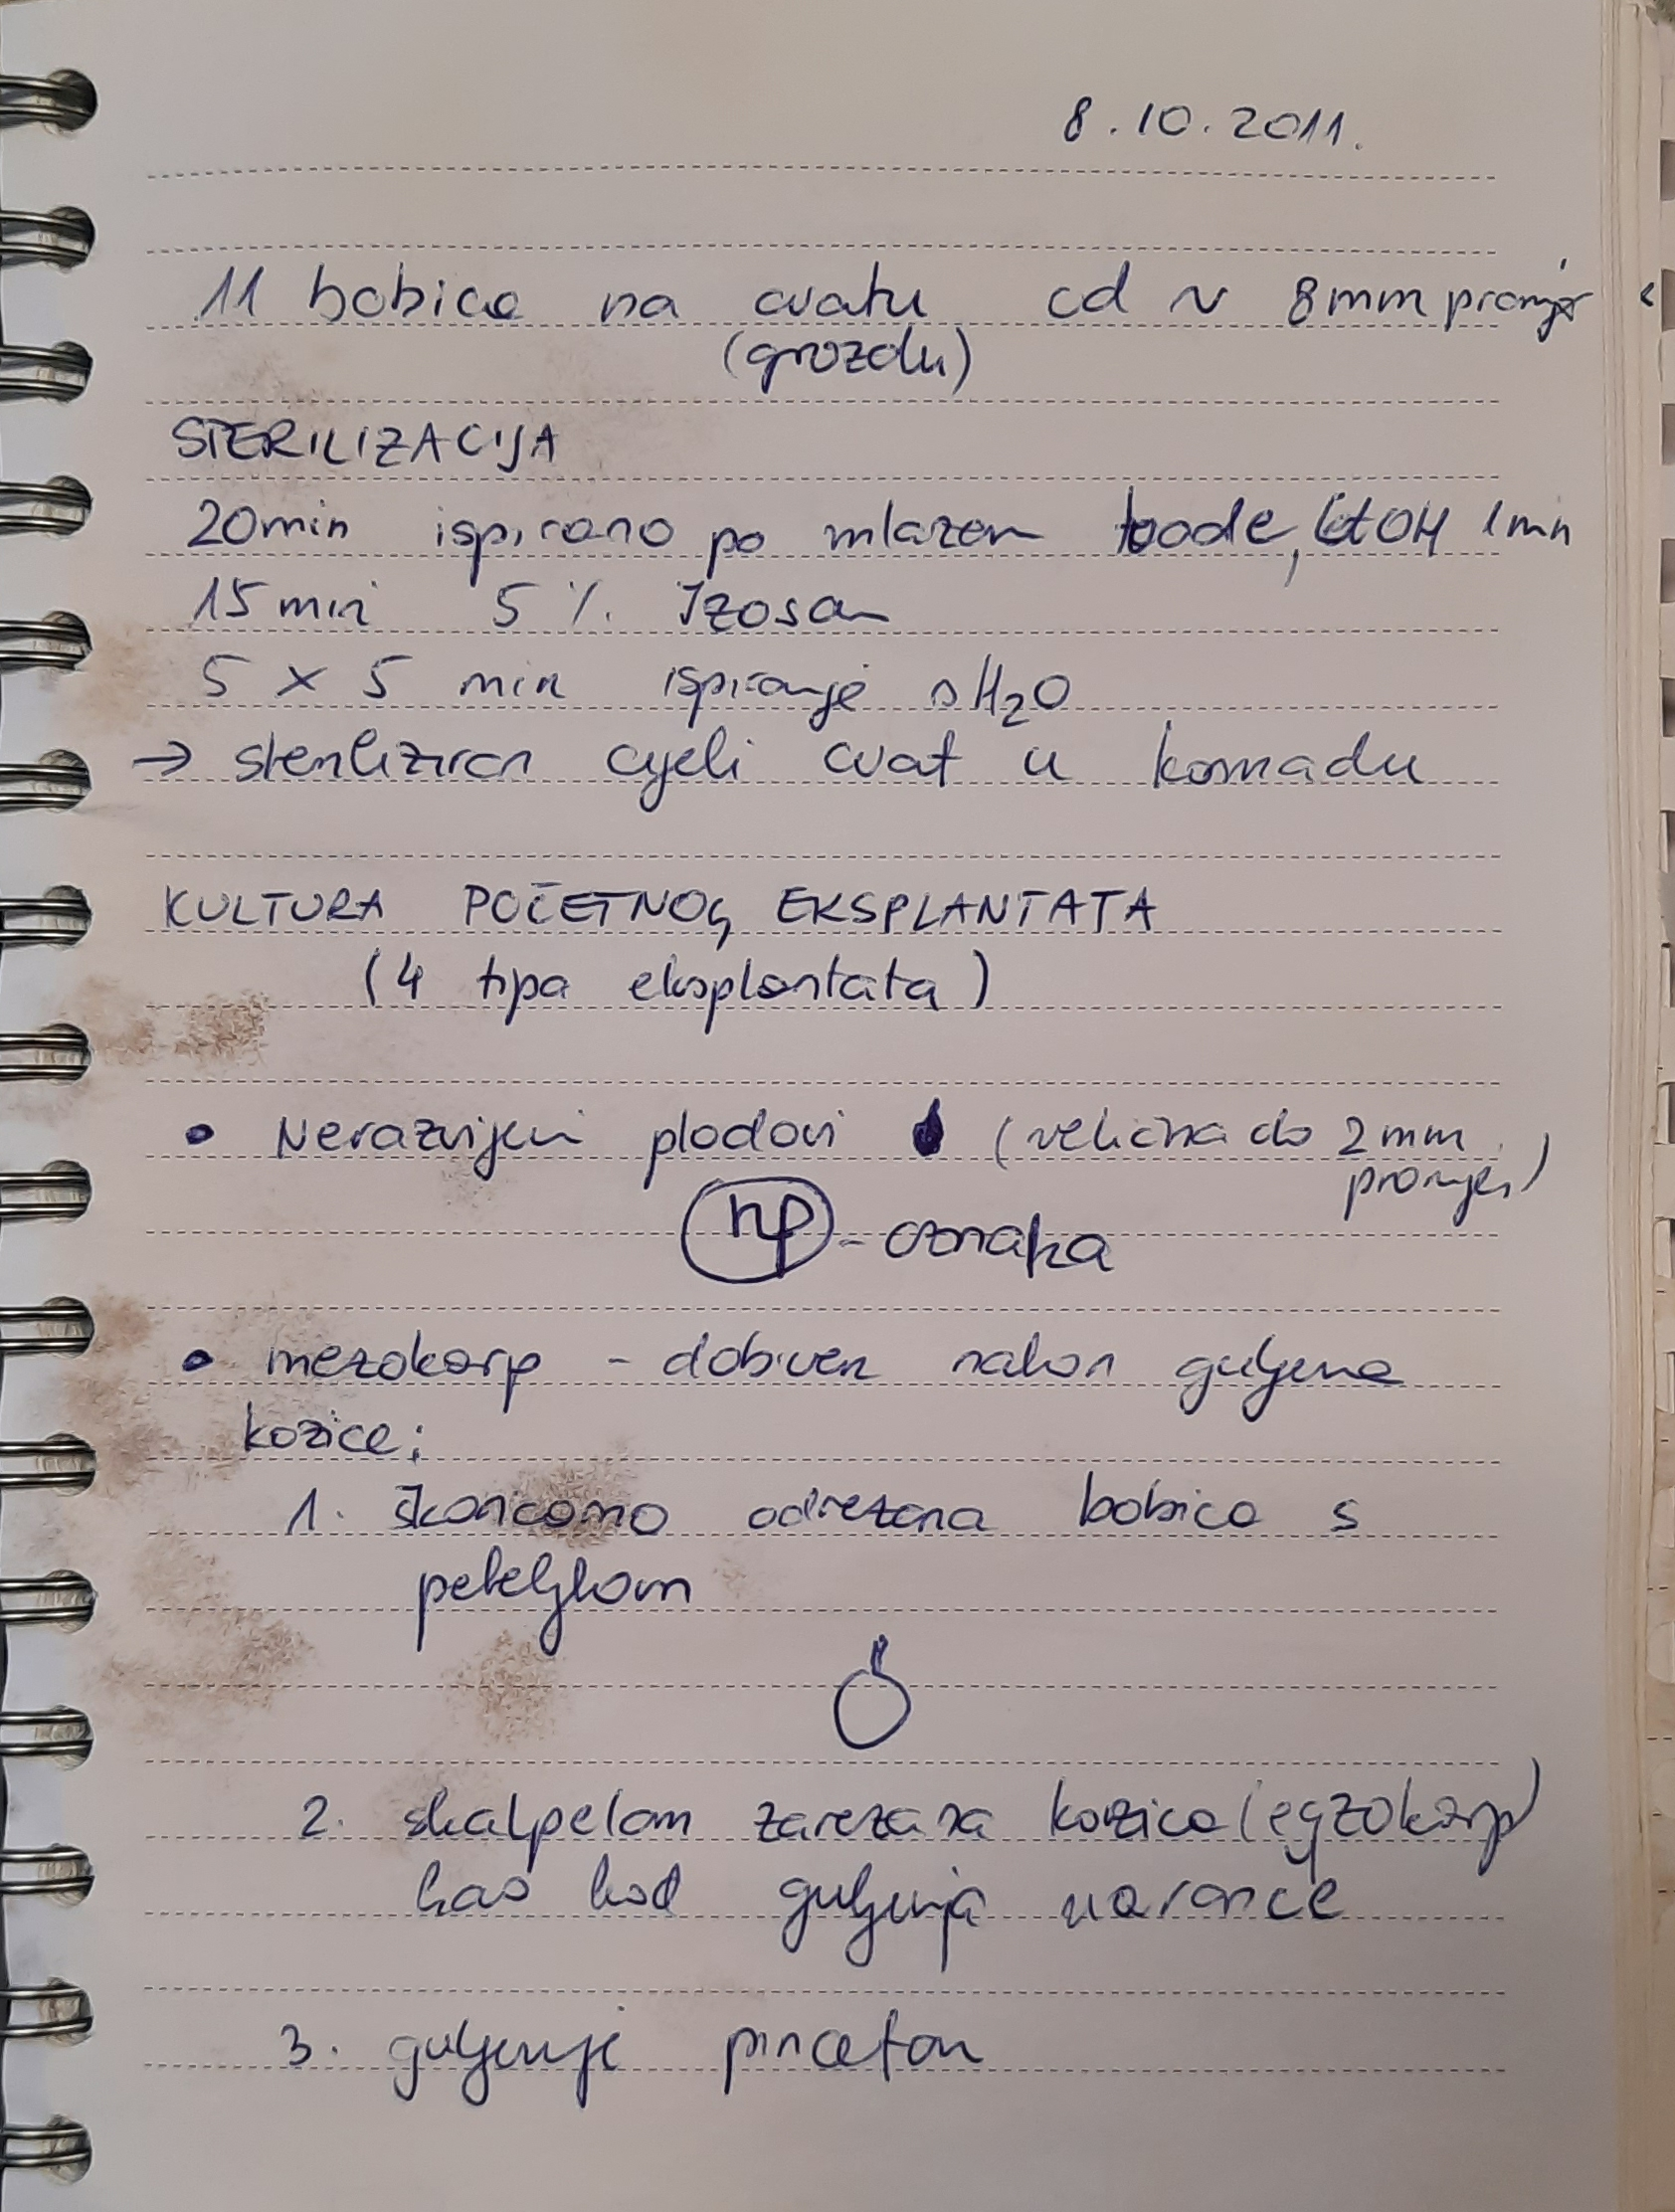 8.10.2011.
11 bobica na cvatu od ~ 8mm promjer
(grozdu)
STERILIZACIJA
20min ispirano po mlazom vode, EtOH 1min
15 min 5 % Izosan
5 x 5 min ispiranje sH₂O
→ steriliziran cijeli cvat u komadu
KULTURA POČETNOG EKSPLANTATA
(4 tipa eksplantata)
• Nerazvijeni plodovi (veličina do 2mm
promjer)
np - oznaka
• mezokarp - dobiven nakon guljenja
kožice:
1. škaricama odrezana bobica s
peteljkom
2. skalpelom zarezana kožica (egzokarp)
kao kod guljenja naranče
3. guljenje pincetom